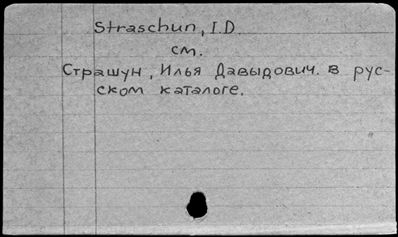 Straschun, I.D.
см.
Страшун, Илья Давыдович. в рус-
ском каталоге.